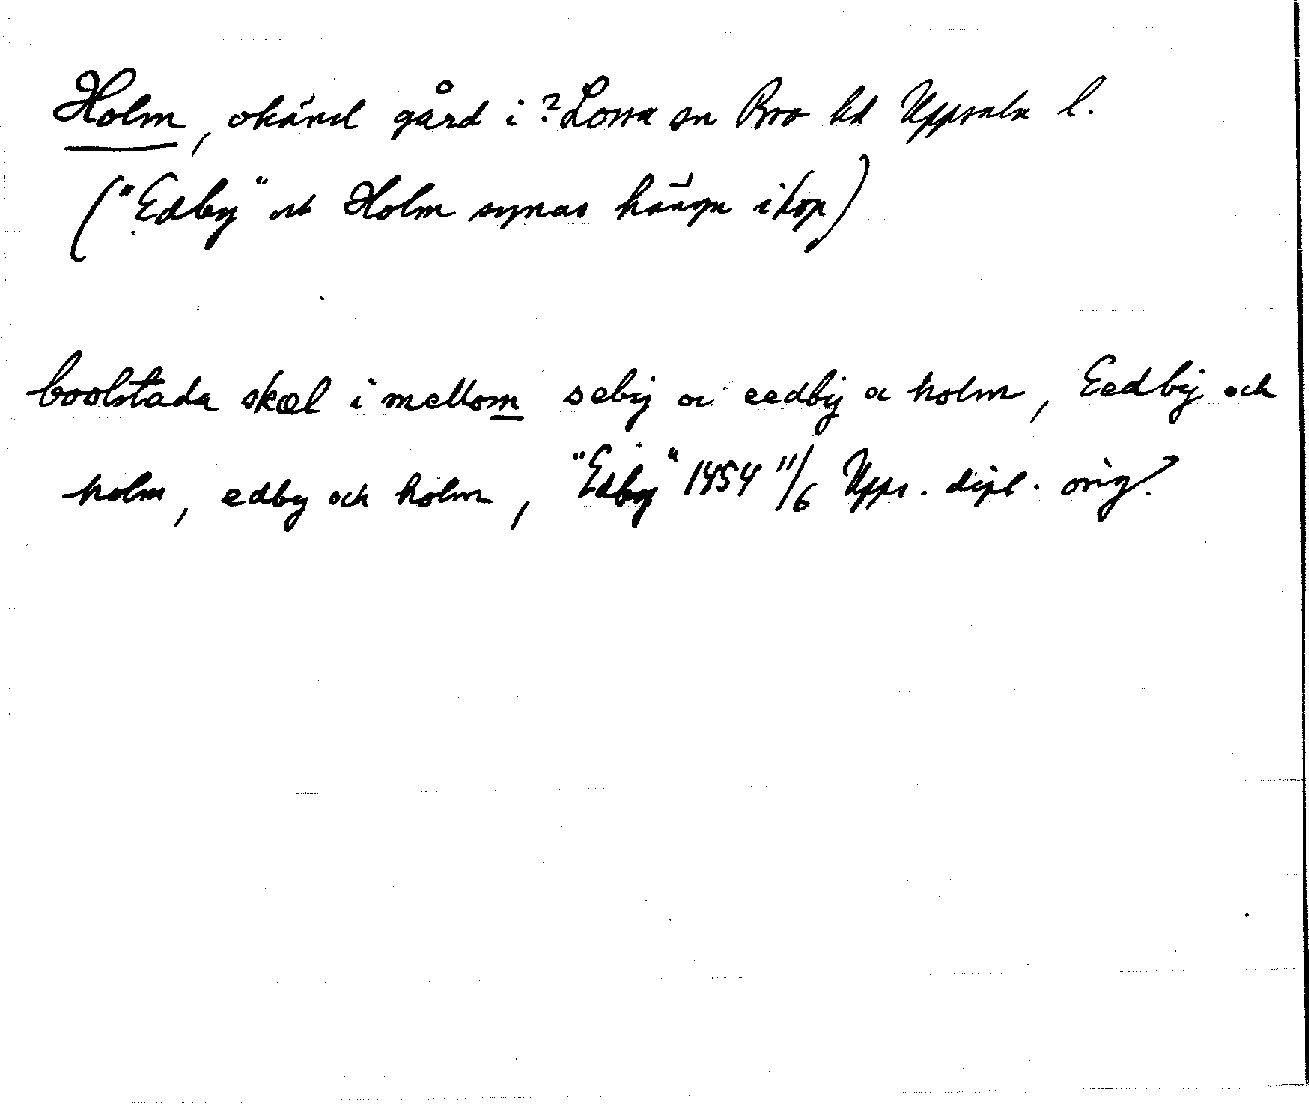 Holm, okänd gård i ? Lossa sn Bro hd Uppsala l.
("Edby" och Holm synas hänga ihop)
boolstada skæl i mellom sæby oc eedby oc holm, Eedby och
holm, edby och holm, "Edby" 1454 11/6 Upps. dipl. orig.